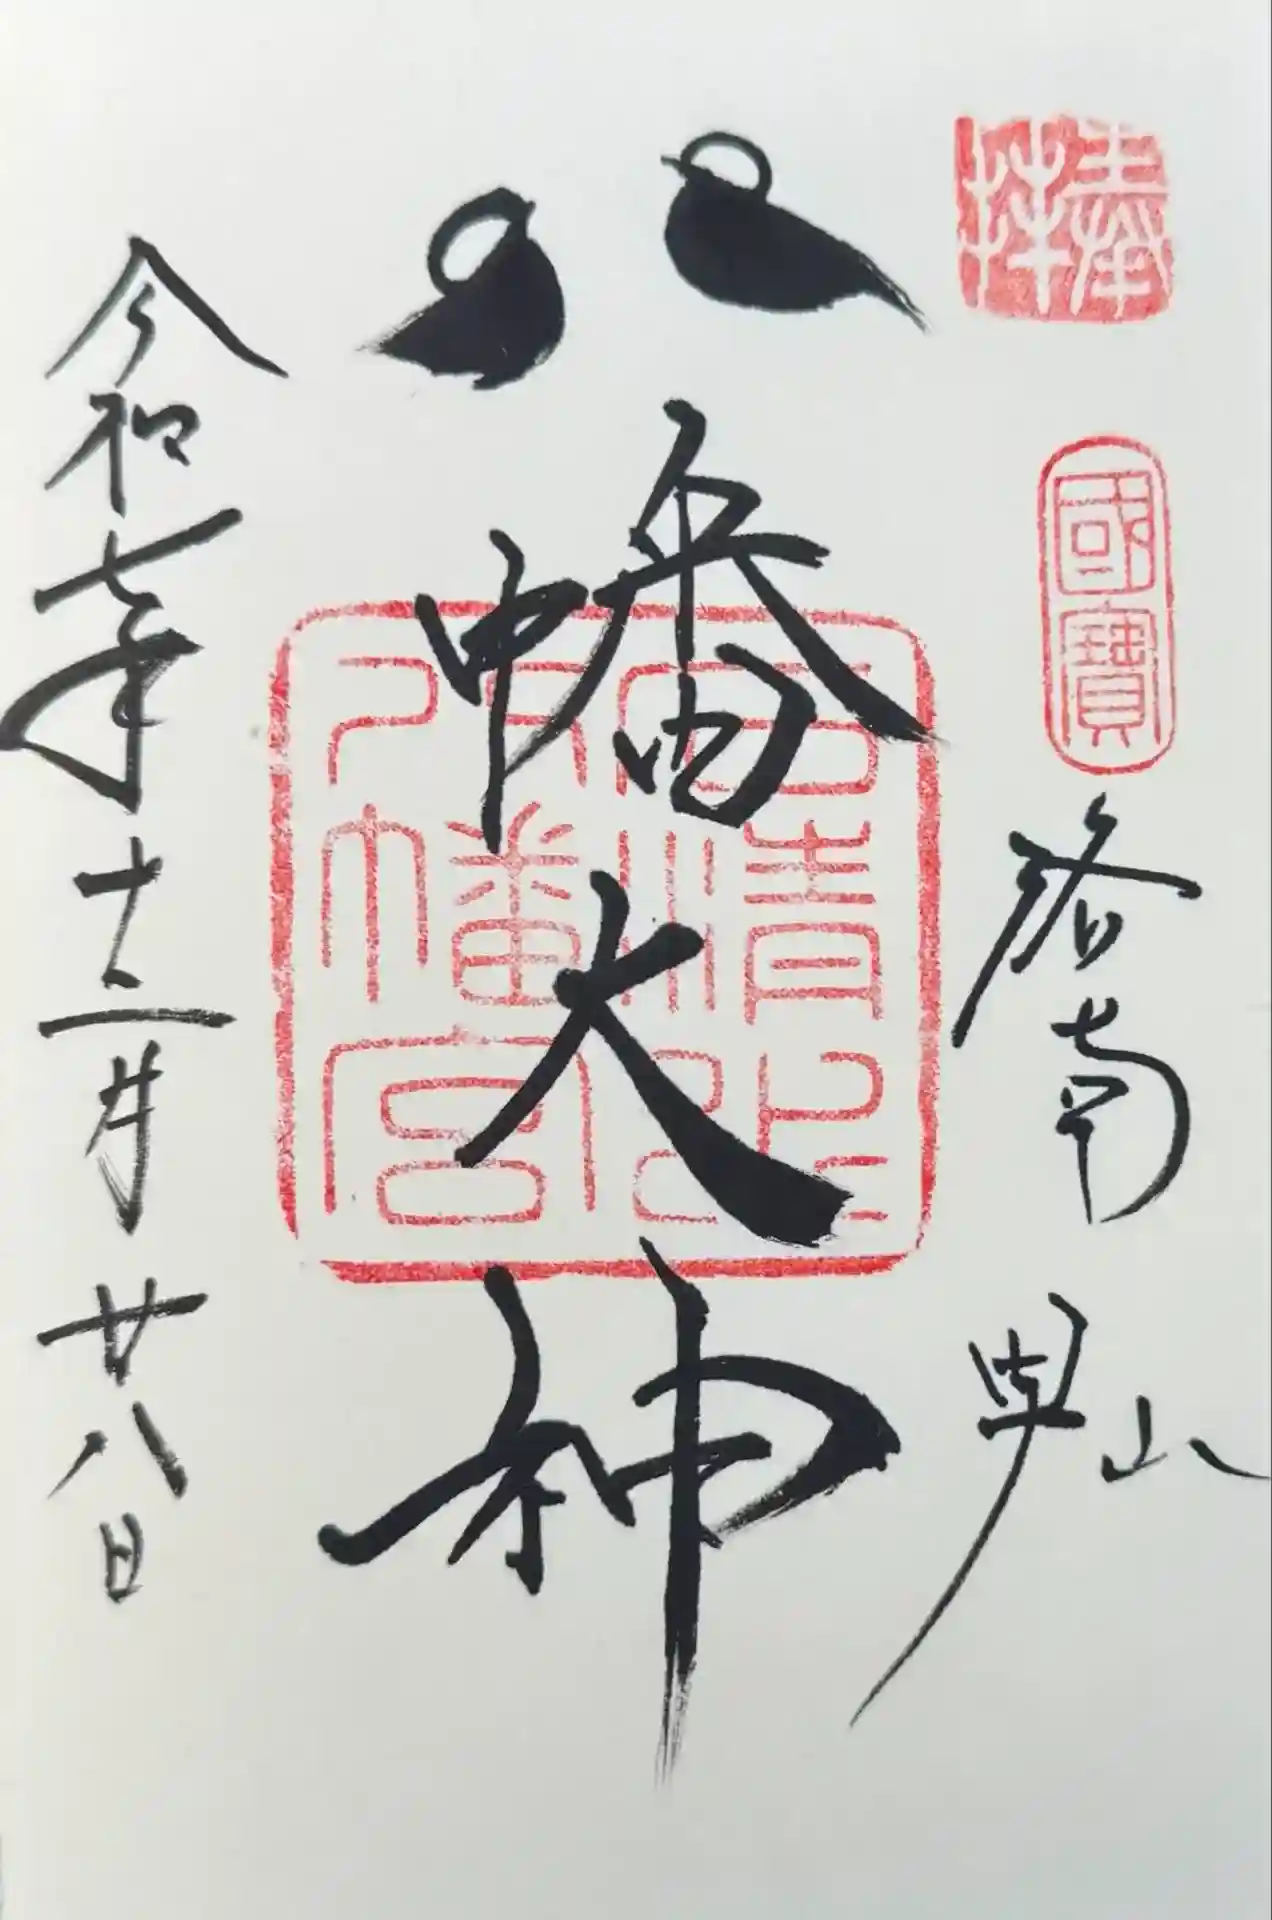 奉拝
國寶
洛南 男山
八幡大神
石清水八幡宮
令和七年十二月廿八日